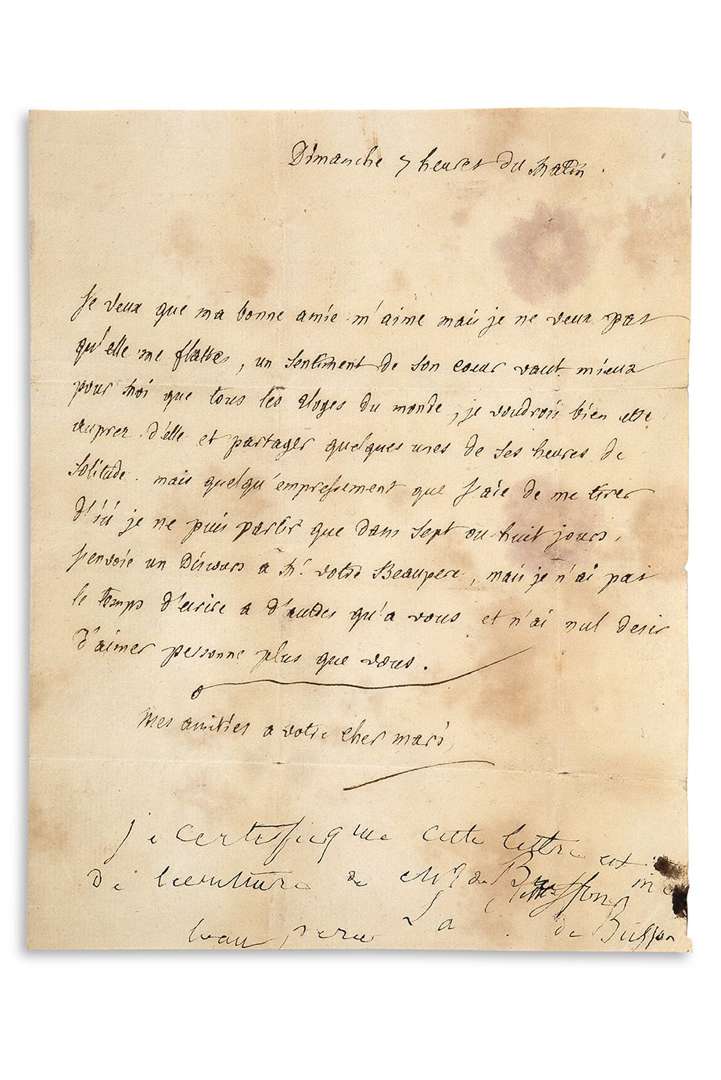 Dimanche 7 heures du Matin.
Je veux que ma bonne amie m'aime mais je ne veux pas
qu'elle me flatte, un sentiment de son coeur vaut mieux
pour moi que tous les eloges du monde, je voudrois bien etre
auprez d'elle et partager quelques unes de ses heures de
solitude. mais quelqu'empressement que j'aie de me tirer
d'ici je ne puis partir que dans sept ou huit jours.
j'envoie un Discours a Mr. votre Beaupere, mais je n'ai pas
le temps d'ecrire a d'autres qu'a vous et n'ai nul desir
d'aimer personne plus que vous.
Mes amitiés a votre cher mari
je certifie que cette lettre est
de lecriture de Mr de Buffon
beau pere La de Buffon